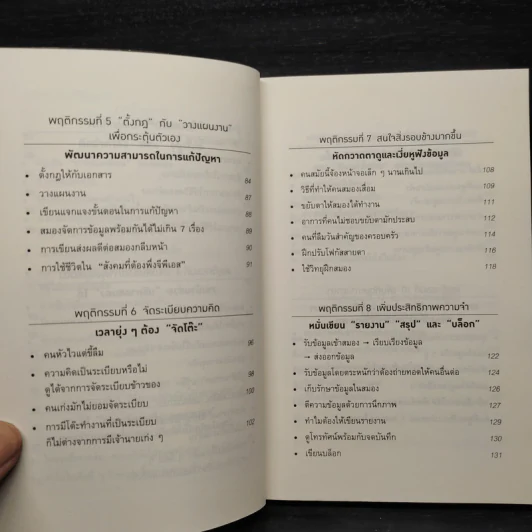 พฤติกรรมที่ 5 “ตั้งกฎ” กับ “วางแผนงาน”
เพื่อกระตุ้นตัวเอง
พัฒนาความสามารถในการแก้ปัญหา
• ตั้งกฎให้กับเอกสาร 84
• วางแผนงาน 87
• เขียนแจกแจงขั้นตอนในการแก้ปัญหา 88
• สมองจัดการข้อมูลพร้อมกันได้ไม่เกิน 7 เรื่อง 89
• การเขียนส่งผลดีต่อสมองกลีบหน้า 90
• การใช้ชีวิตใน “สังคมที่ต้องพึ่งจีพีเอส” 91
พฤติกรรมที่ 6 จัดระเบียบความคิด
เวลายุ่ง ๆ ต้อง “จัดโต๊ะ”
• คนหัวไวแต่ขี้ลืม 96
• ความคิดเป็นระเบียบหรือไม่ 98
ดูได้จากการจัดระเบียบข้าวของ
• คนเก่งมักไม่ยอมจัดระเบียบ 100
• การมีโต๊ะทำงานที่เป็นระเบียบ 102
ก็ไม่ต่างจากการมีเจ้านายเก่ง ๆ
พฤติกรรมที่ 7 สนใจสิ่งรอบข้างมากขึ้น
หัดกวาดตาดูและเงี่ยหูฟังข้อมูล
• คนสมัยนี้จ้องหน้าจอเล็ก ๆ นานเกินไป 108
• วิธีที่ทำให้คนสมองเสื่อม 109
• ขยับตาให้สมองได้ทำงาน 111
• อาการที่คนไม่ชอบขยับตามักประสบ 112
• คนที่ลืมวันสำคัญของครอบครัว 114
• ฝึกปรับโฟกัสสายตา 116
• ใช้วิทยุฝึกสมอง 118
พฤติกรรมที่ 8 เพิ่มประสิทธิภาพความจำ
หมั่นเขียน “รายงาน” “สรุป” และ “บล็อก”
• รับข้อมูลเข้าสมอง → เรียบเรียงข้อมูล
→ ส่งออกข้อมูล 122
• รับข้อมูลโดยตระหนักว่าต้องถ่ายทอดให้คนอื่นต่อ 124
• เก็บรักษาข้อมูลในสมอง 126
• ตีความข้อมูลด้วยการนึกภาพ 127
• ทำไมต้องให้เขียนรายงาน 129
• ดูโทรทัศน์พร้อมกับจดบันทึก 130
• เขียนบล็อก 131